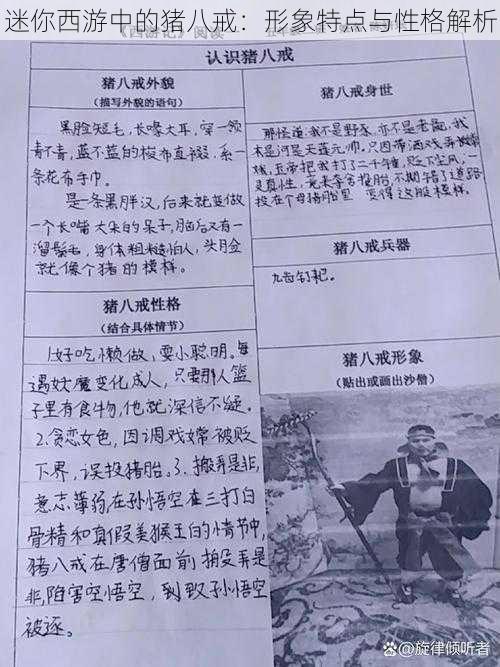 迷你西游中的猪八戒：形象特点与性格解析
认识猪八戒
猪八戒外貌
（描写外貌的语句）
黑脸短毛，长喙大耳，穿一领
青不青，蓝不蓝的梭布直裰，系一
条花布手巾。
是一条黑胖汉，后来就变做
一个长嘴大耳朵的呆子，脑后又有一
溜鬃毛，身体粗糙怕人，头脸
就像个猪的模样。
猪八戒性格
（结合具体情节）
1.好吃懒做，耍小聪明。每
遇妖魔变化成人，只要那人篮
子里有食物，他就深信不疑。
2.贪恋女色，因调戏嫦被贬
下界，误投猪胎。3.搬弄是非，
意志薄弱，在孙悟空在三打白
骨精和真假美猴王的情节中，
猪八戒在唐僧面前搬弄是
非，陷害空悟空，到致孙悟空
被逐。
猪八戒身世
那怪道：我不是野豕，亦不是老彘，我
本是河是天蓬元帅，只因带酒戏弄嫦
娥，玉帝把我打了二千锤，贬下尘凡，一
灵真性，竟来夺舍投胎，不期错了道路
投在个母猪胎里 变得这般模样。
猪八戒兵器
九齿钉耙。
猪八戒形象
（贴出或画出沙僧）
@旋律倾听者